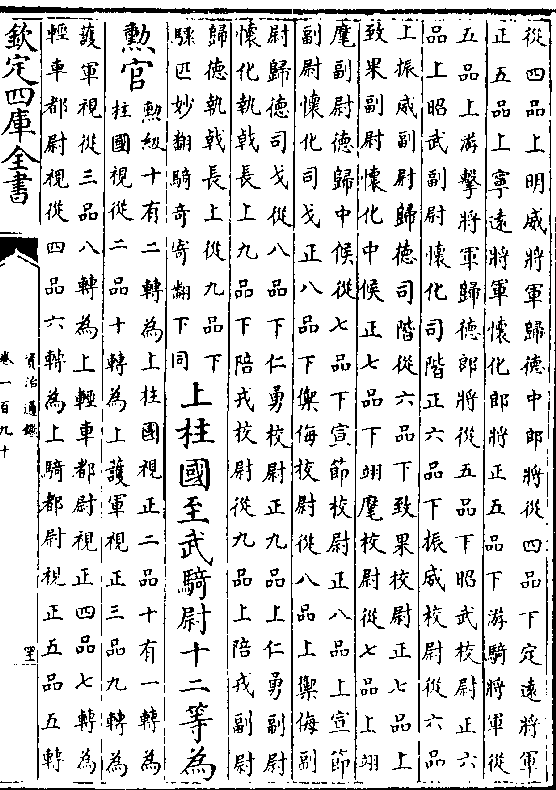 從四品上明威將軍歸德中郎將從四品下定遠將軍
正五品上寧遠將軍懷化郎將正五品下游騎將軍從
五品上游擊將軍歸德郎將從五品下昭武校尉正六
品上昭武副尉懷化司階正六品下振威校尉從六品
上振威副尉歸德司階從六品下致果校尉正七品上
致果副尉懷化中候正七品下翊麾校尉從七品上翊
麾副尉德歸中候從七品下宣節校尉正八品上宣節
副尉懷化司戈正八品下禦侮校尉從八品上禦侮副
尉歸德司戈從八品下仁勇校尉正九品上仁勇副尉
懷化執戟長上九品下陪戎校尉從九品上陪戎副尉
歸德執戟長上從九品下
驃匹妙翻騎奇寄翻下同
上柱國至武騎尉十二等為
勲官
勲級十有二轉為上柱國視正二品十有一轉為
柱國視從二品十轉為上護軍視正三品九轉為
護軍視從三品八轉為上輕車都尉視正四品七轉為
輕車都尉視從四品六轉為上騎都尉視正五品五轉
欽定四庫全書
資治通鑑
卷一百九十